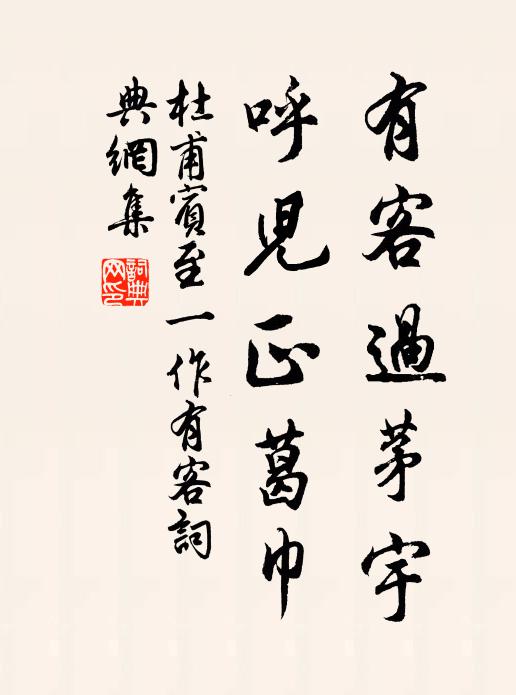 有客過茅宇
呼兒正葛巾
杜甫賓至一作有客詞
典網集
詞典网印